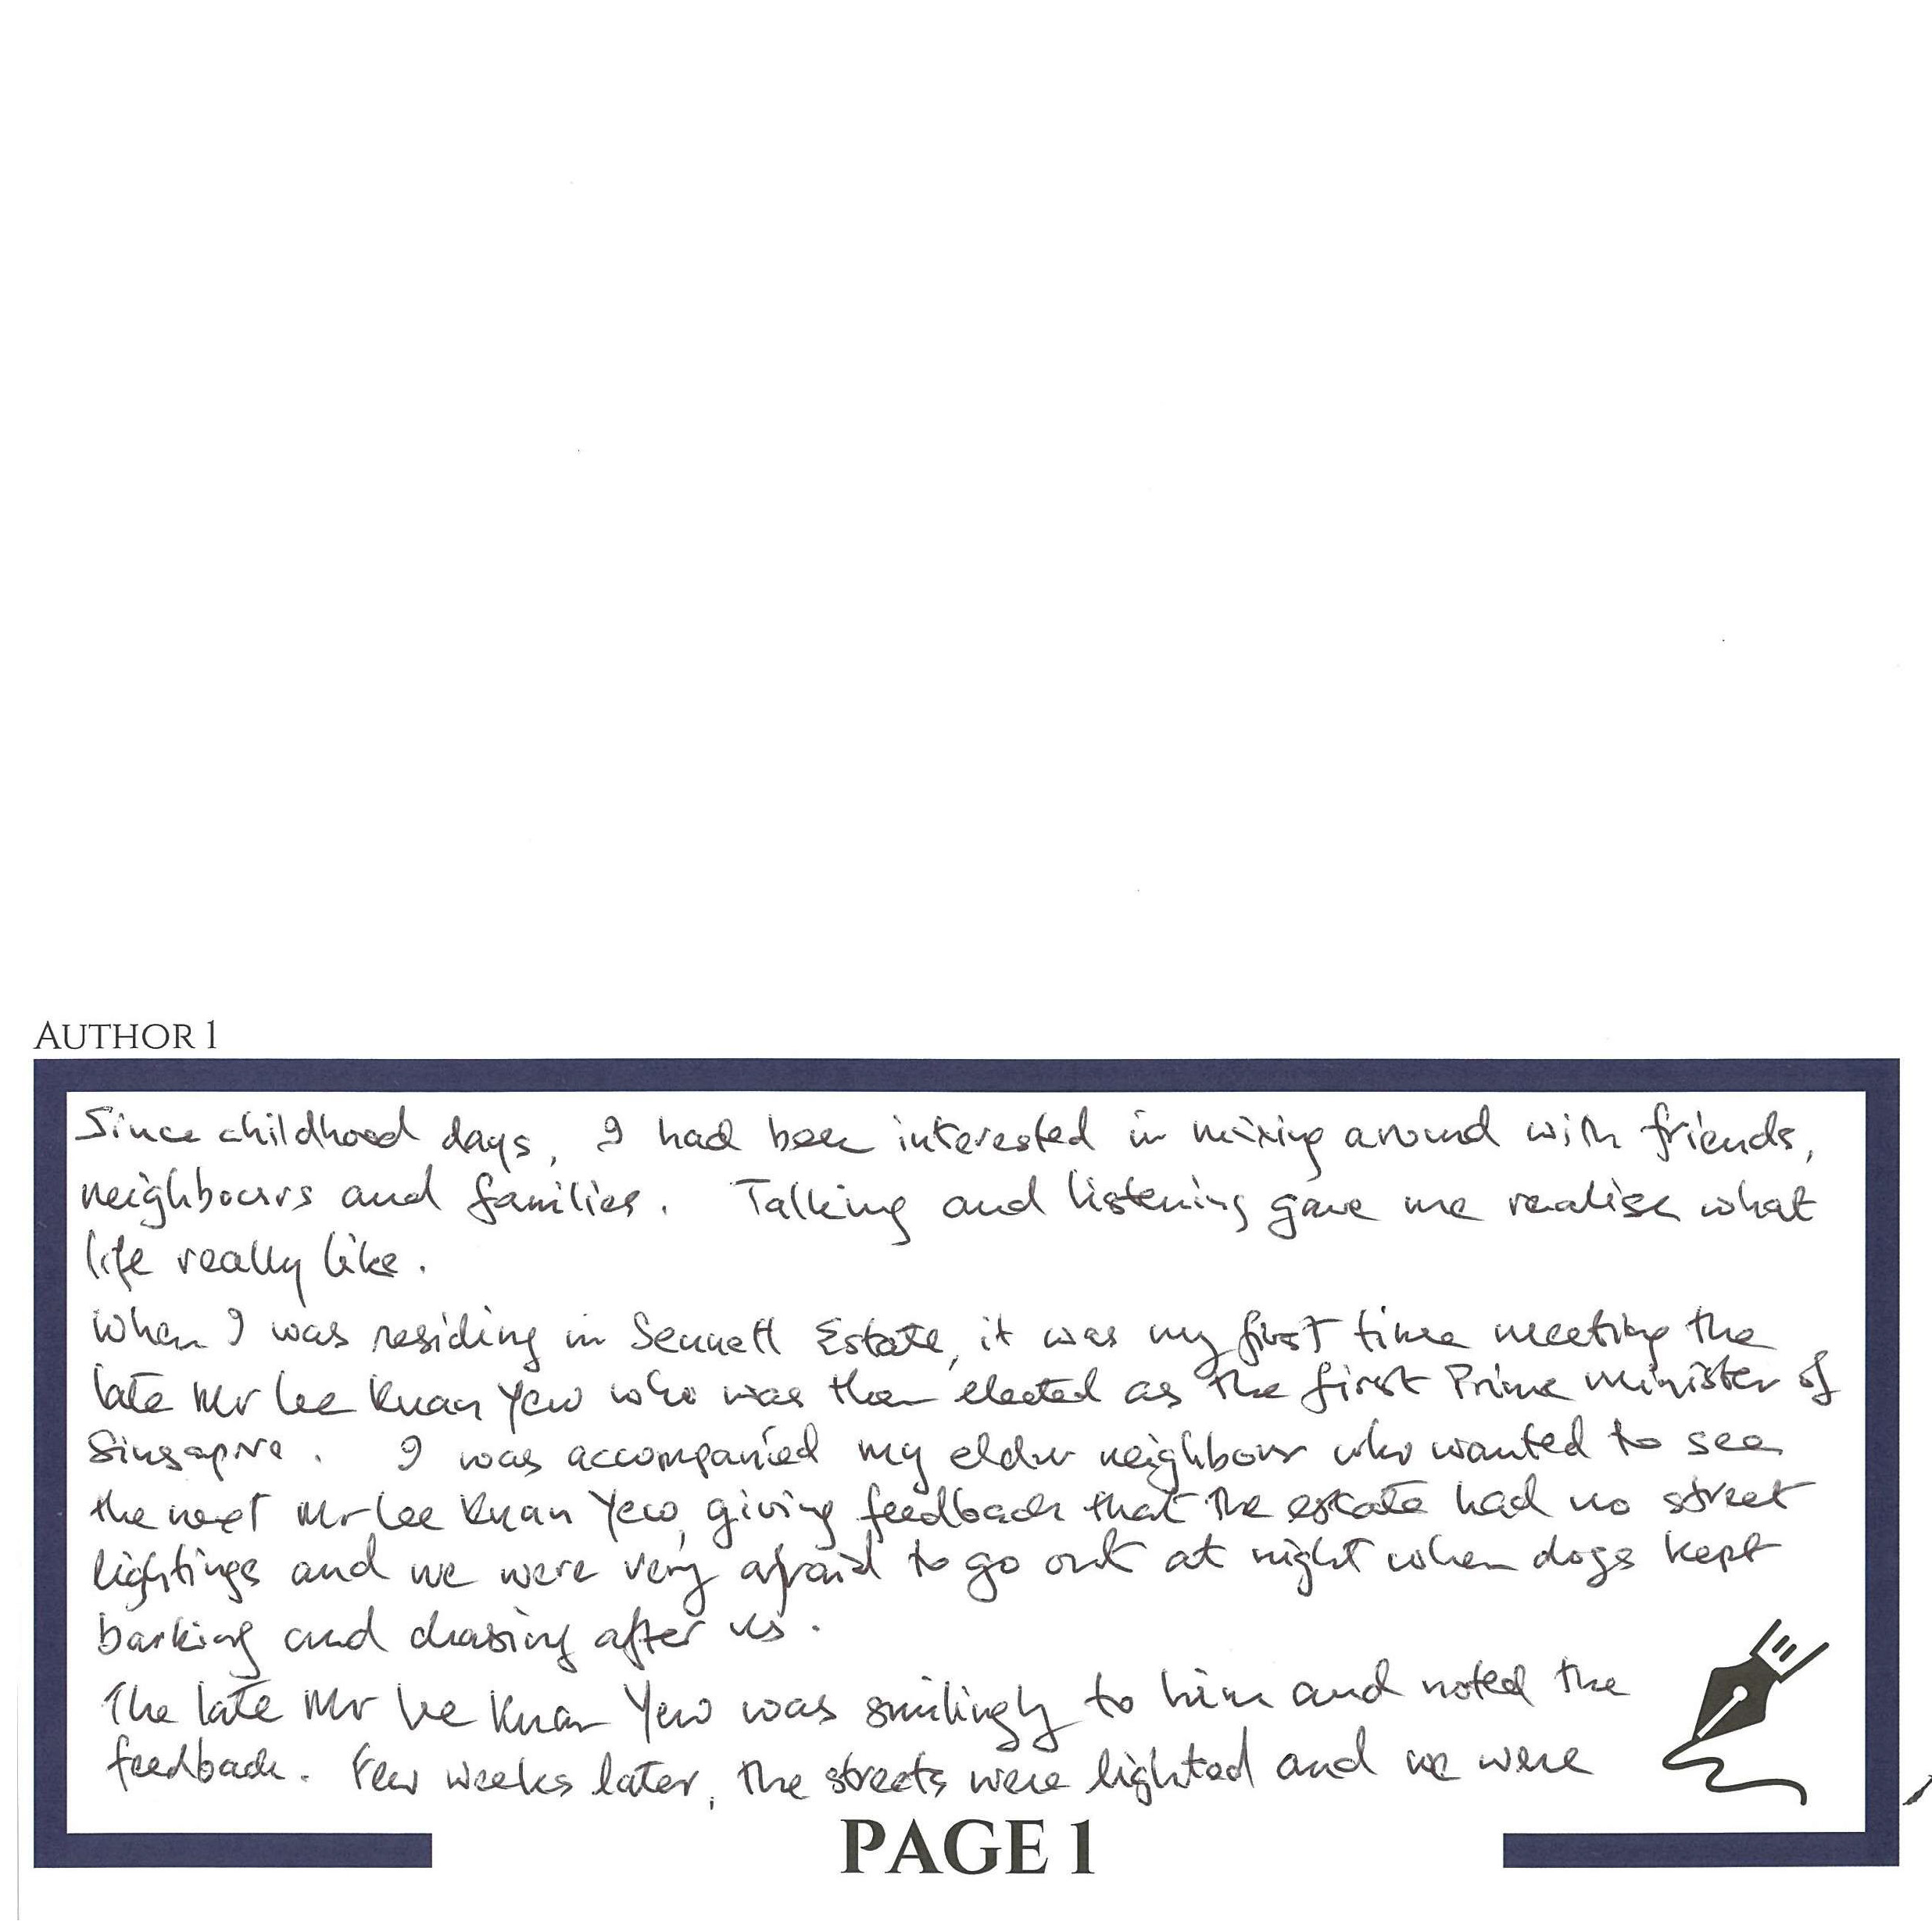 AUTHOR 1
Since childhood days, I had been interested in mixing around with friends,
neighbours and families. Talking and listening gave me realise what
life really like.
When I was residing in Sennett Estate, it was my first time meeting the
late Mr Lee Kuan Yew who was then elected as the first Prime Minister of
Singapore. I was accompanied my elder neighbour who wanted to see
the Mr Lee Kuan Yew, giving feedback that the estate had no street
lightings and we were very afraid to go out at night when dogs kept
barking and chasing after us.
The late Mr Lee Kuan Yew was smilingly to him and noted the
feedback. Few weeks later, the streets were lighted and we were
PAGE 1